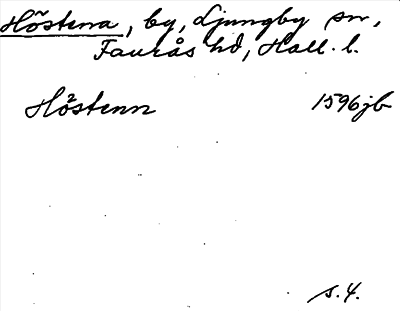 Höstena, by, Ljungby sn,
Faurås hd, Hall. l.
Höstenn 1596 jb
s. 4.